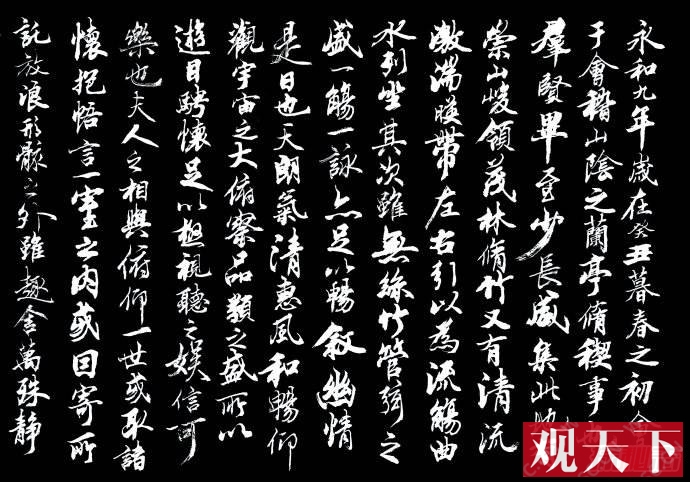 永和九年歲在癸丑暮春之初
于會稽山陰之蘭亭脩稧事
羣賢畢至少長咸集此
崇山峻領茂林脩竹又有清流
激湍暎帶左右引以為流觴曲
水列坐其次雖無絲竹管弦之
盛一觴一詠亦足以暢敘幽情
是日也天朗氣清惠風和暢仰
觀宇宙之大俯察品類之盛所以
遊目騁懷足以極視聽之娛信可
樂也夫人之相與俯仰一世或取諸
懷抱悟言一室之內或因寄所
託放浪形骸之外雖趣舍萬殊靜
观天下